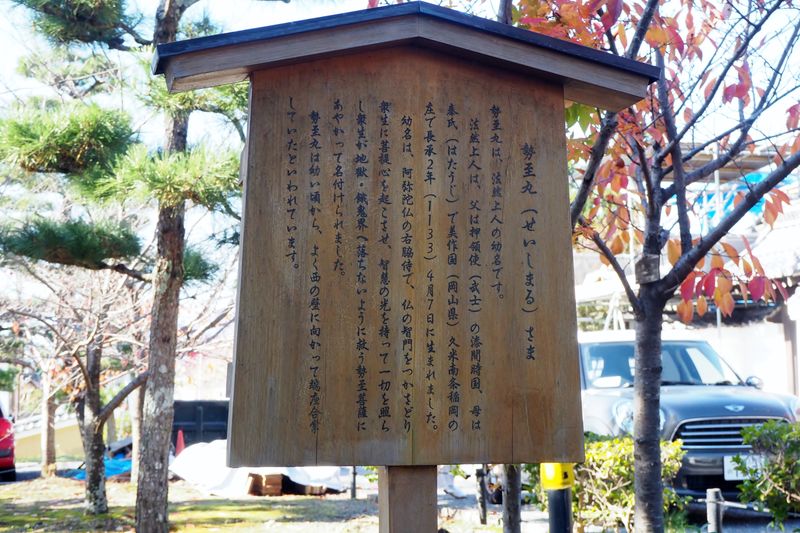 勢至丸（せいしまる）さま
勢至丸は、法然上人の幼名です。
法然上人は、父は押領使（武士）の漆間時国、母は
秦氏（はたうじ）で美作国（岡山県）久米南条稲岡の
庄で長承2年（1133）4月7日に生まれました。
幼名は、阿弥陀仏の右脇侍で、仏の智門をつかさどり
衆生に菩提心を起こさせ、智慧の光を持って一切を照ら
し衆生が地獄・餓鬼界へ落ちないように救う勢至菩薩に
あやかって名付けられました。
勢至丸は幼い頃から、よく西の壁に向かって端座合掌
していたといわれています。